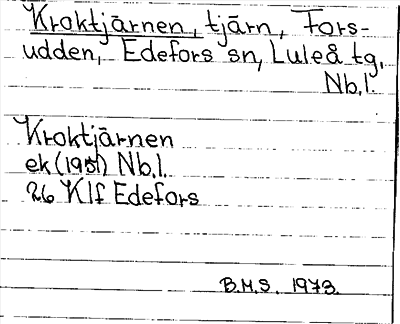 Kroktjärnen, tjärn, Fors-
udden, Edefors sn, Luleå tg,
Nb.l.
Kroktjärnen
ek (1951) Nb.l.
26 Klf Edefors
B.M.S. 1973.